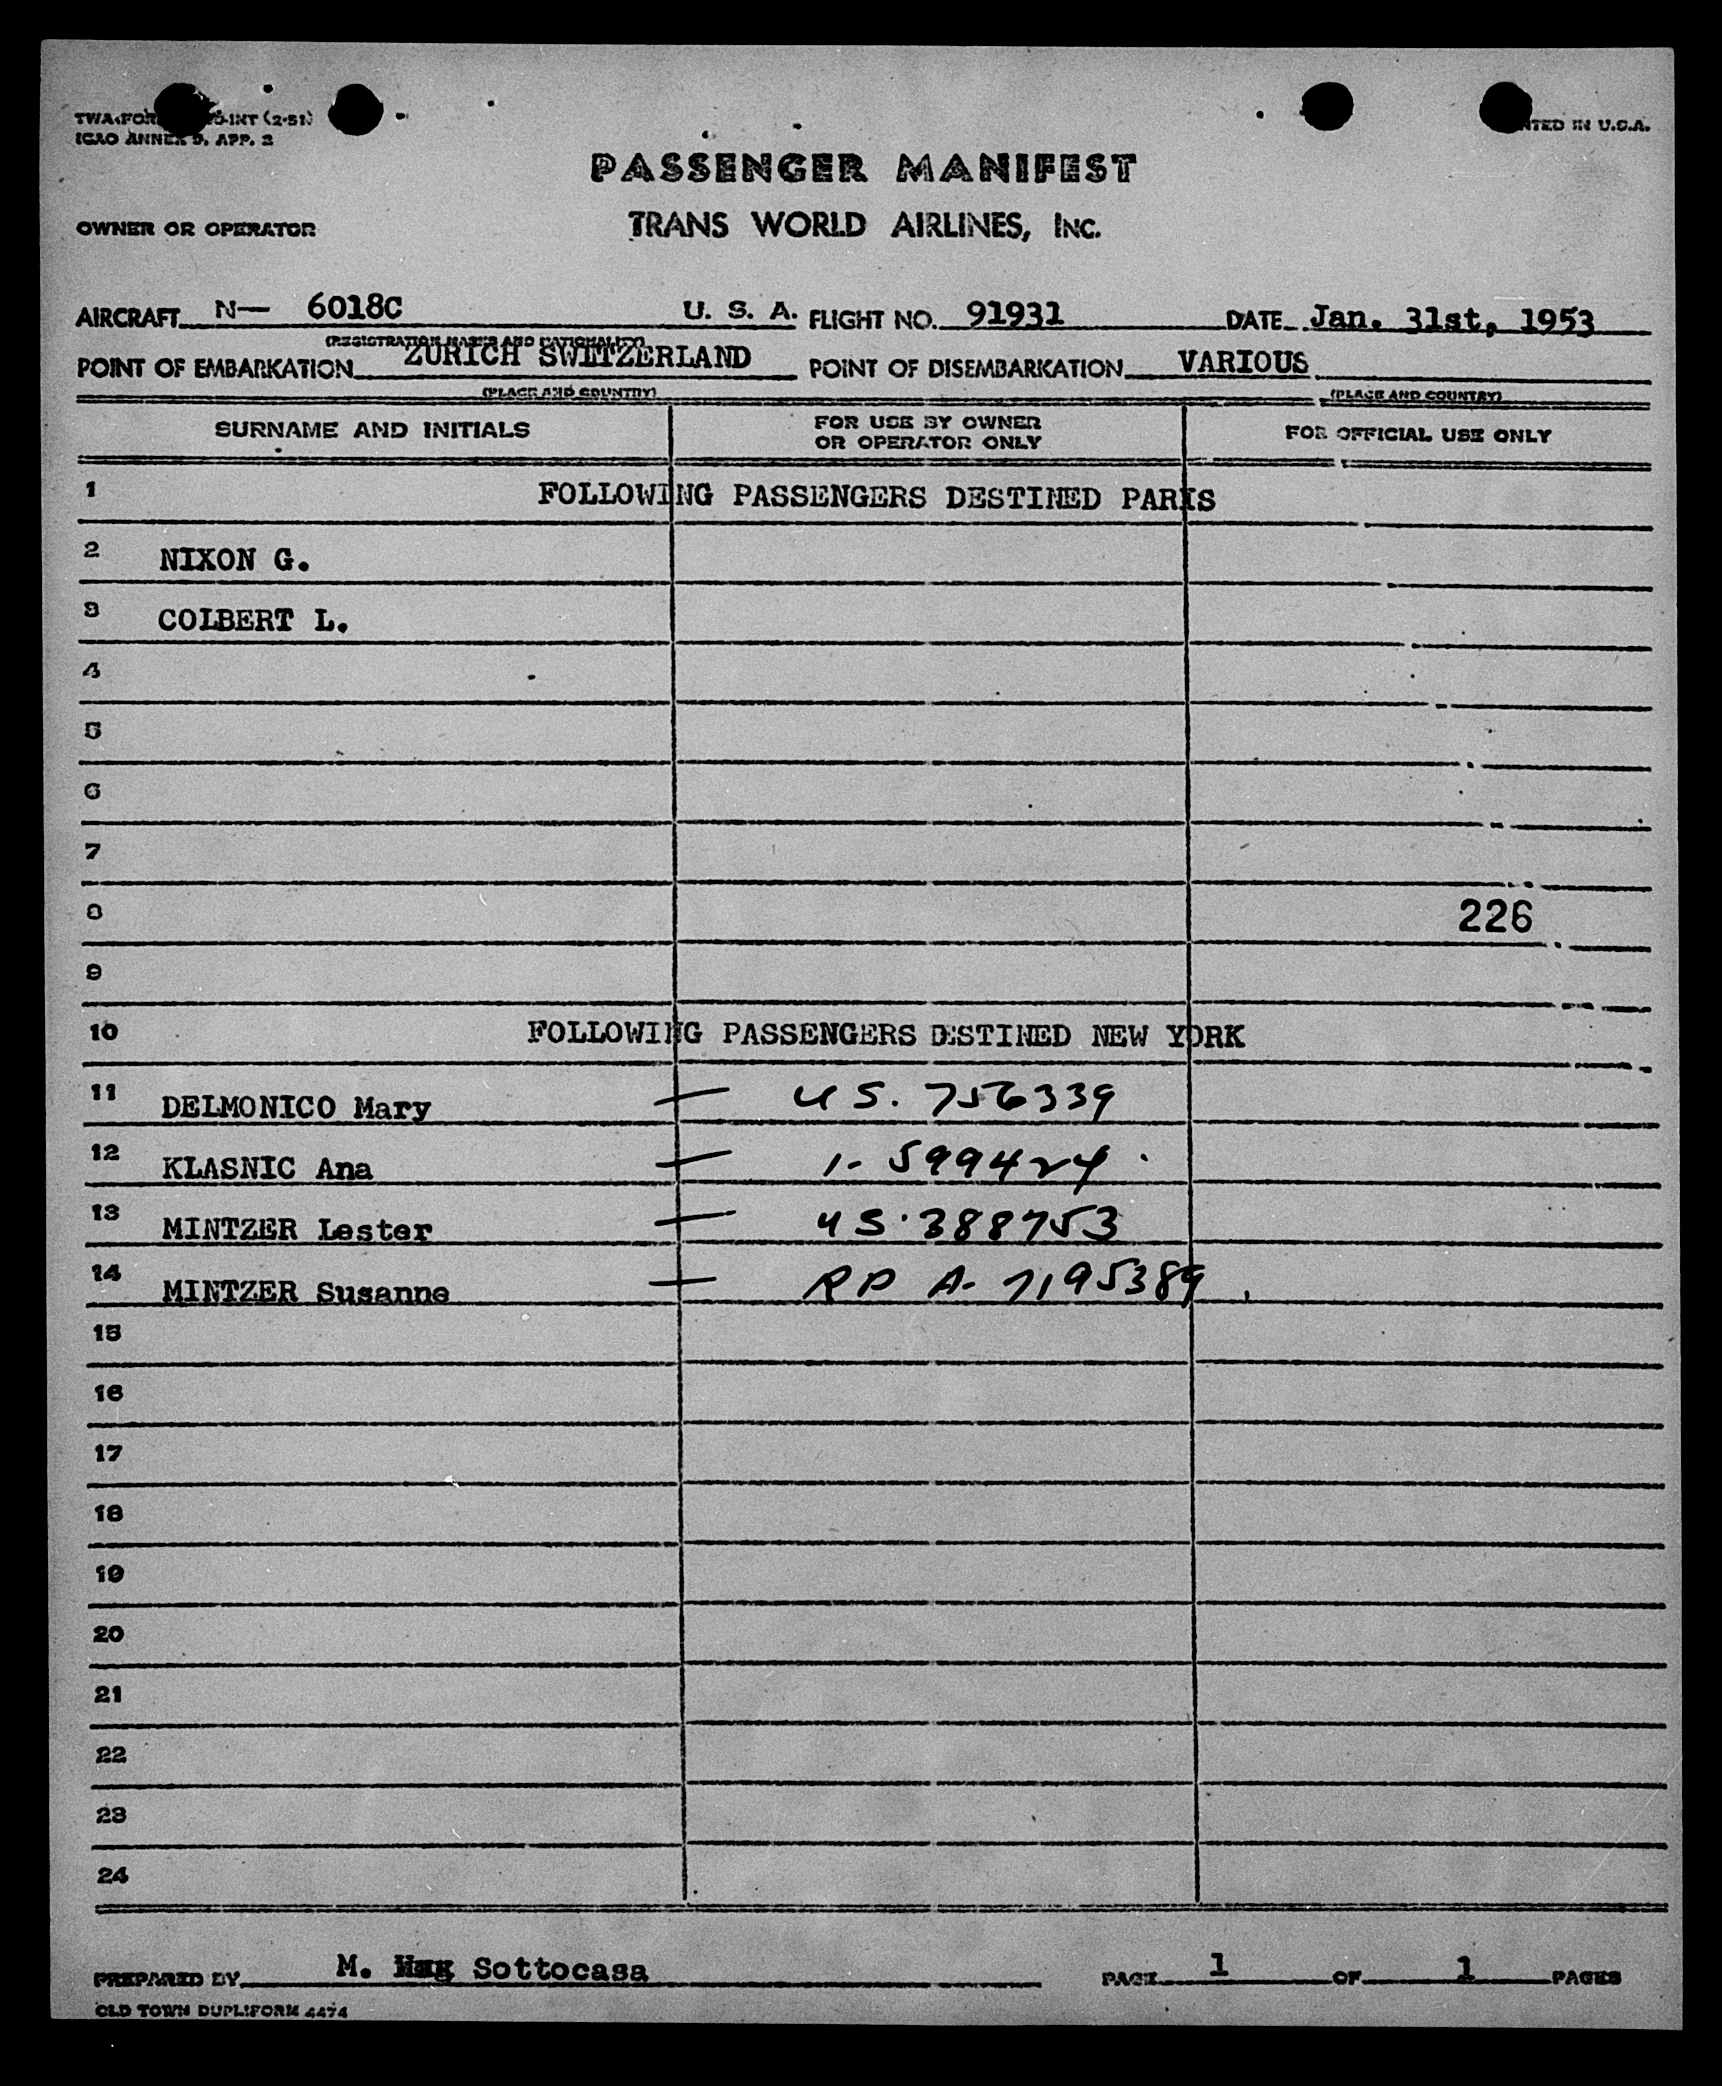 TWA FOR -INT (2-51)
ICAO ANNEX 9, APP. 2
TED IN U.S.A.
PASSENGER MANIFEST
OWNER OR OPERATOR TRANS WORLD AIRLINES, INC.
AIRCRAFT N— 6018C U. S. A. FLIGHT NO. 91931 DATE Jan. 31st, 1953
(REGISTRATION MARKS AND NATIONALITY)
POINT OF EMBARKATION ZURICH SWITZERLAND POINT OF DISEMBARKATION VARIOUS
(PLACE AND COUNTRY) (PLACE AND COUNTRY)
SURNAME AND INITIALS FOR USE BY OWNER OR OPERATOR ONLY FOR OFFICIAL USE ONLY
1 FOLLOWING PASSENGERS DESTINED PARIS
2 NIXON G.
3 COLBERT L.
4
5
6
7
8 226
9
10 FOLLOWING PASSENGERS DESTINED NEW YORK
11 DELMONICO Mary — US. 756339
12 KLASNIC Ana — 1- 599424
13 MINTZER Lester — US. 388753
14 MINTZER Susanne — RP A- 7195389
15
16
17
18
19
20
21
22
23
24
PREPARED BY M. Sottocasa PAGE 1 OF 1 PAGES
OLD TOWN DUPLIFORM 4474